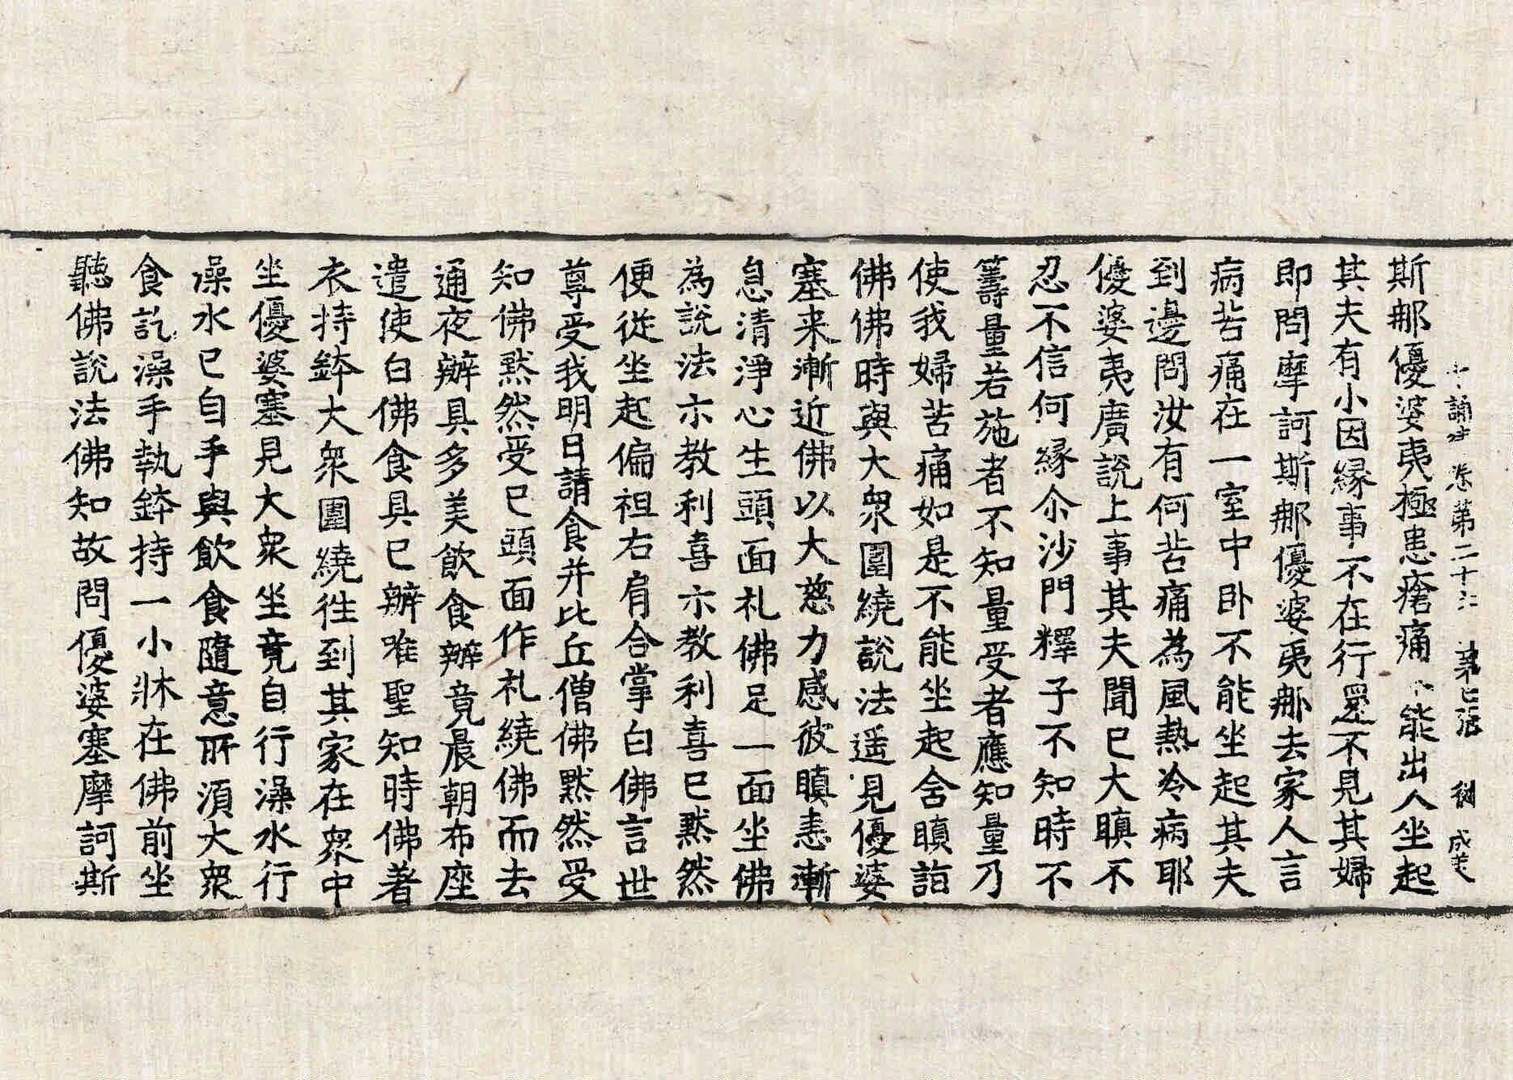 十誦律 卷第二十六 第七張 別 成美
斯那優婆夷極患瘡痛不能出入坐起
其夫有小因緣事不在行還不見其婦
即問摩訶斯那優婆夷那去家人言
病苦痛在一室中卧不能坐起其夫
到邊問汝有何苦痛為風熱冷病耶
優婆夷廣說上事其夫聞已大瞋不
忍不信何緣尒沙門釋子不知時不
籌量若施者不知量受者應知量乃
使我婦苦痛如是不能坐起舍瞋詣
佛佛時與大衆圍繞說法遥見優婆
塞来漸近佛以大慈力感彼瞋恚漸
息清淨心生頭面礼佛足一面坐佛
為說法示教利喜示教利喜已黙然
便從坐起偏袒右肩合掌白佛言世
尊受我明日請食并比丘僧佛黙然受
知佛黙然受已頭面作礼繞佛而去
通夜辦具多美飲食辦竟晨朝布座
遣使白佛食具已辦唯聖知時佛著
衣持鉢大衆圍繞徃到其家在衆中
坐優婆塞見大衆坐竟自行澡水行
澡水已自手與飲食隨意所湏大衆
食訖澡手執鉢持一小牀在佛前坐
聽佛說法佛知故問優婆塞摩訶斯